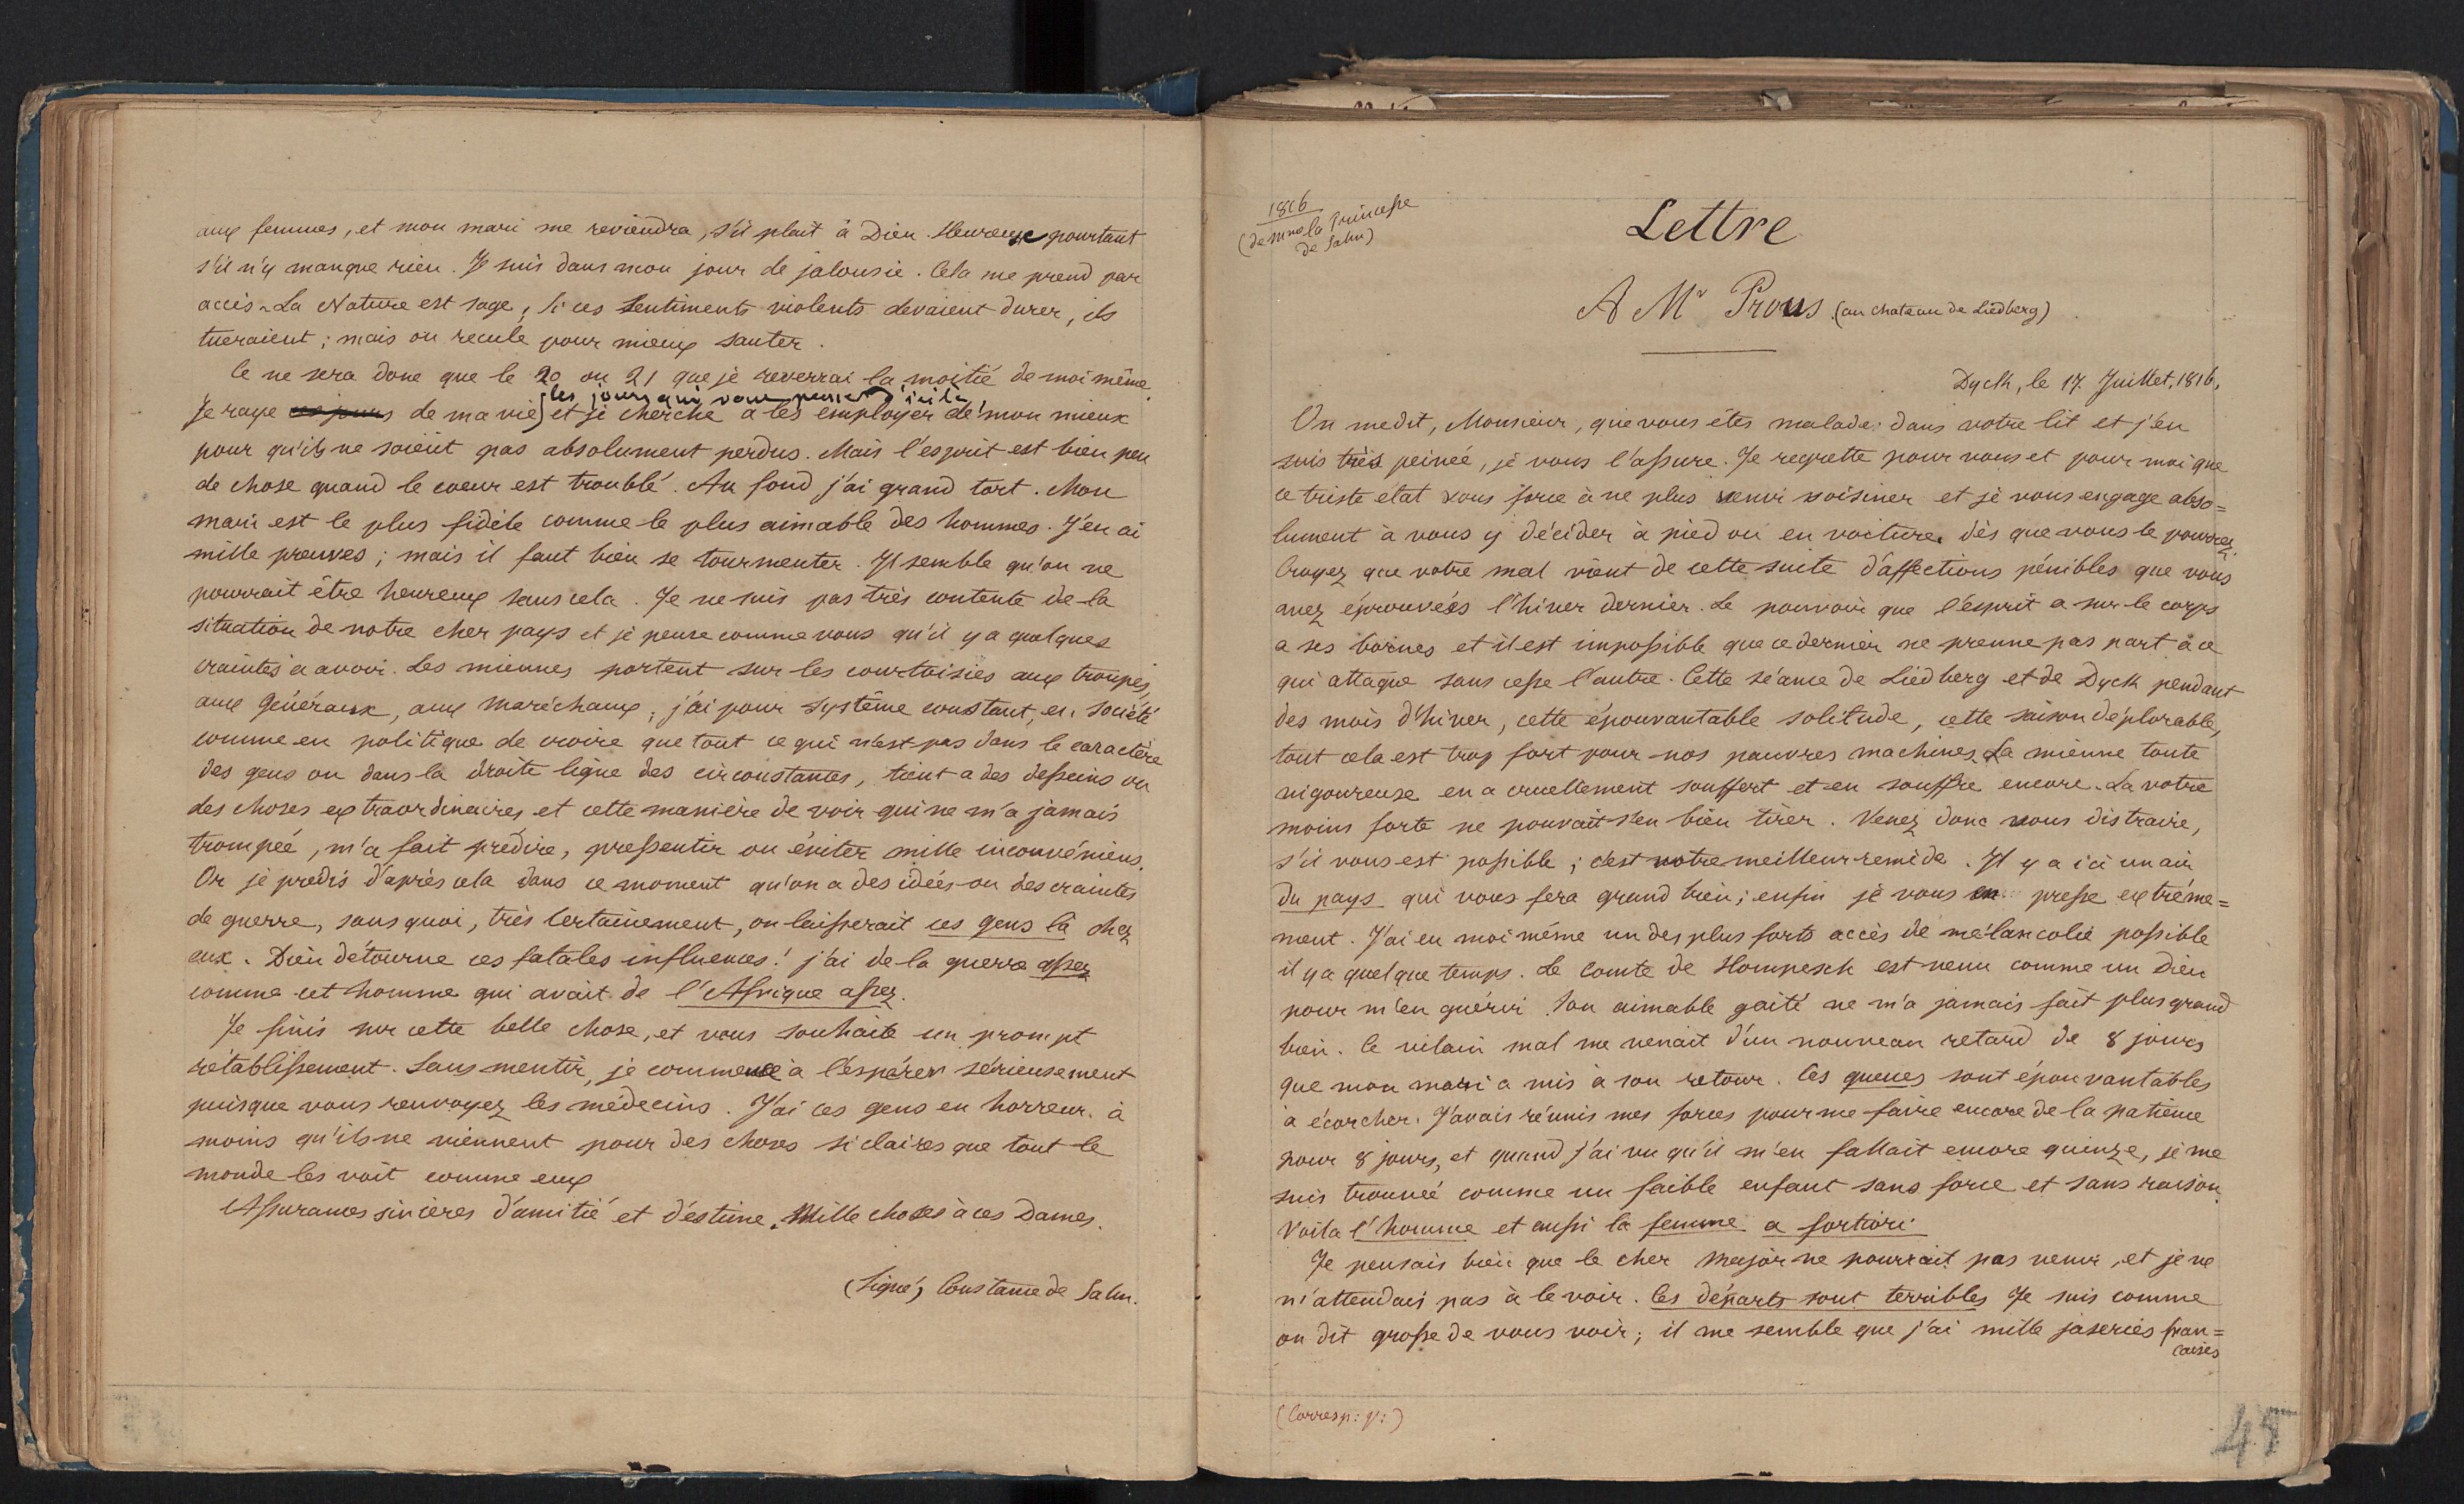 aux femmes, et mon mari me reviendra, s'il plait à Dieu. Heureuse pourtant
s'il n'y manque rien. Je suis dans mon jour de jalousie. Cela me prend par
accès. La Nature est sage, si ces sentiments violents devaient durer, ils
tueraient ; mais on recule pour mieux sauter.
Ce ne sera donc que le 20 ou 21 que je reverrai la moitié de moi même.
les jours qui vont passer
Je raye de ma vie et je cherche a les employer de mon mieux
pour qu'ils ne soient pas absolument perdus. Mais l'esprit est bien peu
de chose quand le coeur est troublé. Au fond j'ai grand tort. Mon
mari est le plus fidèle comme le plus aimable des hommes. J'en ai
mille preuves ; mais il faut bien se tourmenter. Il semble qu'on ne
pourrait être heureux sans cela. Je ne suis pas très contente de la
situation de notre cher pays et je pense comme vous qu'il y a quelques
craintes a avoir. Les miennes portent sur les courtoisies aux troupes,
aux Généraux, aux Maréchaux ; j'ai pour système constant, en société
comme en politique de croire que tout ce qui n'est pas dans le caractère
des gens ou dans la droite ligne des circonstances, tient a des desseins ou
des choses extraordinaires et cette manière de voir qui ne m'a jamais
trompée, m'a fait prédire, pressentir ou éviter mille inconvéniens.
Or je prédis d'après cela dans ce moment qu'on a des idées ou des craintes
de guerre, sans quoi, très certainement, on laisserait ces gens là chez
eux. Dieu détourne ces fatales influences ! j'ai de la guerre assez
comme cet homme qui avait de l'Afrique assez.
Je finis sur cette belle chose, et vous souhaite un prompt
rétablissement. Sans mentir, je commence à l'espérer sérieusement
puisque vous renvoyez les médecins. J'ai ces gens en horreur. à
moins qu'ils ne viennent pour des choses si claires que tout le
monde les voit comme eux
Assurances sincères d'amitié et d'estime. Mille choses à ces Dames.
(Signé) Constance de Salm.
1816
(de Mme la Princesse
de Salm)
Lettre
A Mr Prous (au chateau de Liedberg)
Dyck, le 17 Juillet, 1816,
On me dit, Monsieur, que vous êtes malade dans votre lit et j'en
suis très peinée, je vous l'assure. Je regrette pour vous et pour moi que
ce triste état vous force à ne plus venir voisiner et je vous engage abso=
lument à vous y décider à pied ou en voiture, dès que vous le pourrez.
Croyez que votre mal vient de cette suite d'affections pénibles que vous
avez éprouvées l'hiver dernier. Le pouvoir que l'esprit a sur le corps
a ses bornes et il est impossible que ce dernier ne prenne pas part à ce
qui attaque sans cesse l'autre. Cette séance de Liedberg et de Dyck pendant
des mois d'hiver, cette épouvantable solitude, cette saison déplorable,
tout cela est trop fort pour nos pauvres machines. La mienne toute
vigoureuse en a cruellement souffert et en souffre encore. La votre
moins forte ne pouvait s'en bien tirer. Venez donc vous distraire,
s'il vous est possible ; c'est votre meilleur remède. Il y a ici un air
du pays qui vous fera grand bien ; enfin je vous en presse extrème=
ment. J'ai eu moi même un des plus forts accès de mélancolie possible
il y a quelque temps. Le Comte de Hompesch est venu comme un Dieu
pour m'en guérir. Son aimable gaité ne m'a jamais fait plus grand
bien. Ce vilain mal me venait d'un nouveau retard de 8 jours
que mon mari a mis à son retour. Ces queues sont épouvantables
à écorcher. J'avais réunis mes forces pour me faire encore de la patience
pour 8 jours, et quand j'ai vu qu'il m'en fallait encore quinze, je me
suis trouvée comme un faible enfant sans force et sans raison.
Voila l'homme et aussi la femme a fortiori
Je pensais bien que le cher Major ne pourrait pas venir, et je ne
m'attendais pas à le voir. Ces départs sont terribles Je suis comme
on dit grosse de vous voir ; il me semble que j'ai mille jaseries fran=
caises
(Corresp: p:)
45